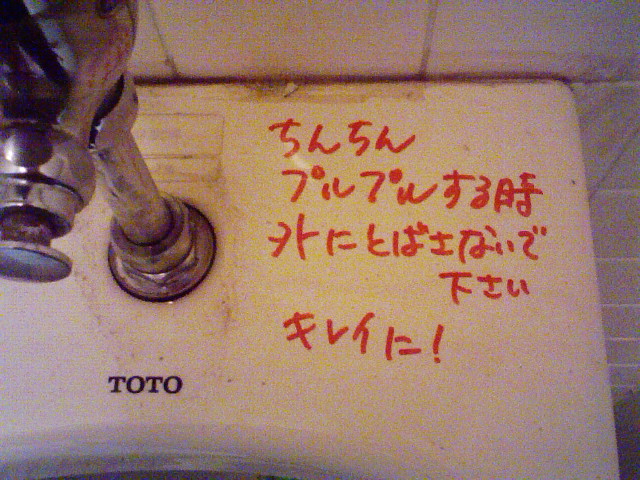 ちんちん
プルプルする時
外にとばさないで
下さい
キレイに!
TOTO